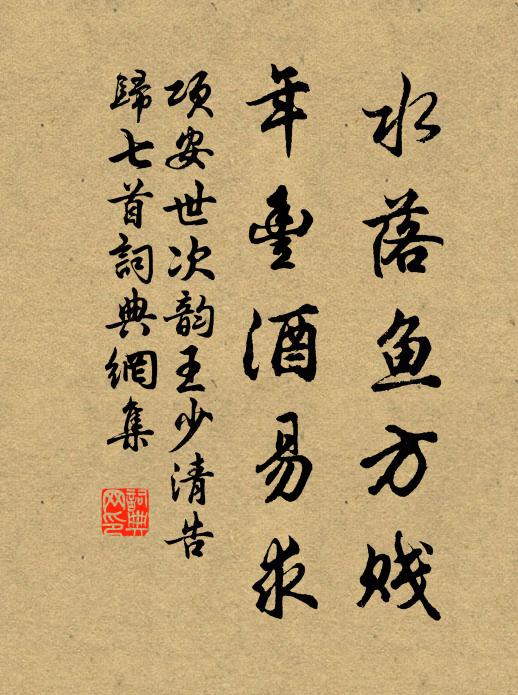 水落鱼方贱
年豐酒易求
项安世次韵王少清告
歸七首詞典網集
詞典
网印